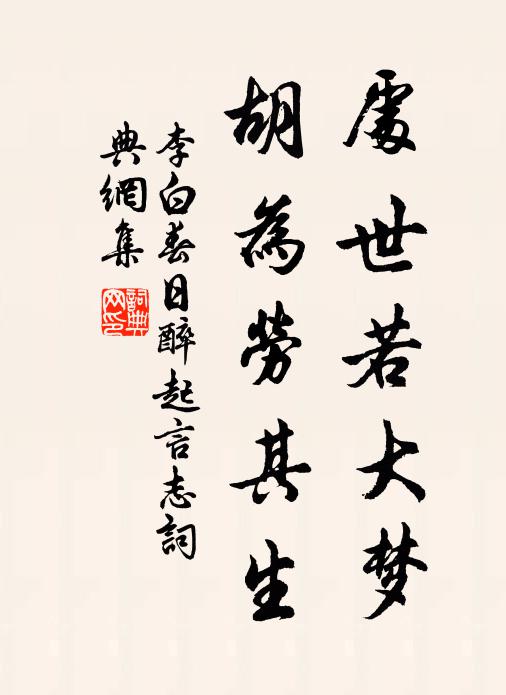 處世若大梦
胡為勞其生
李白春日醉起言志詞
典網集
詞典
网印